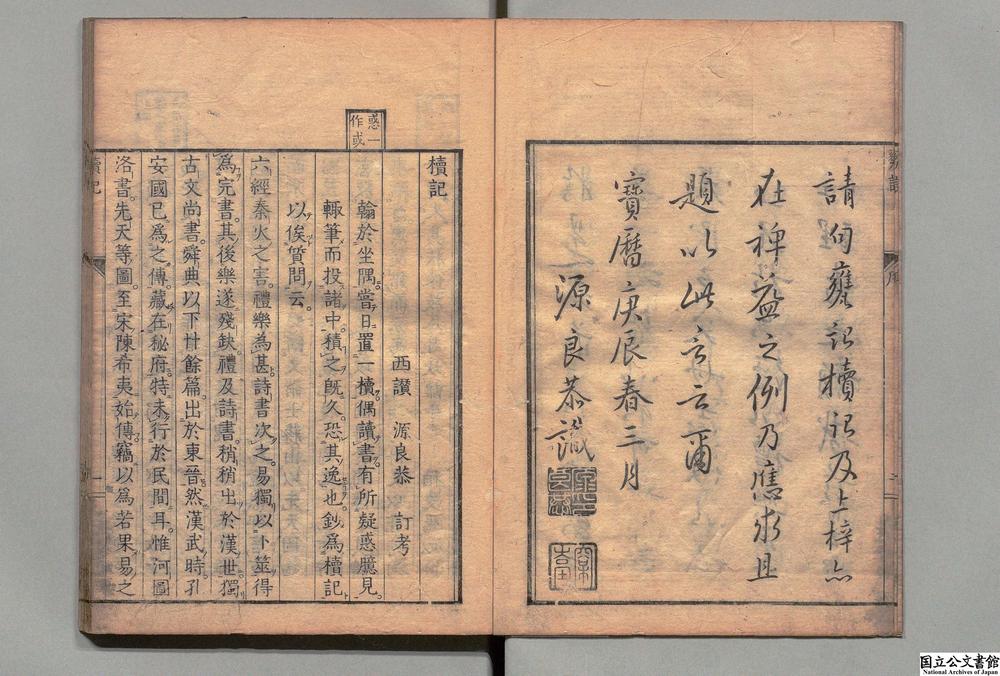 請向癰記櫝記及上梓亦
在裨益之例乃應求且
題以此言云爾
寶曆庚辰春三月
源良恭識
惑一
作或
櫝記
西讃 源良恭 訂考
翰於坐隅當日置一櫝偶讀書有所疑惑臆見
輙筆而投諸中積之既久恐其逸也鈔爲櫝記
以俟質問云
六經秦火之害禮樂為甚詩書次之易獨以卜筮得
爲完書其後樂遂殘缺禮及詩書稍稍出於漢世獨
古文尚書舜典以下廿餘篇出於東晉然漢武時孔
安國已爲之傳藏在秘府特未行於民間耳惟河圖
洛書先天等圖至宋陳希夷始傳竊以爲若果易之
櫝記
一
国立公文書館
National Archives of Japan